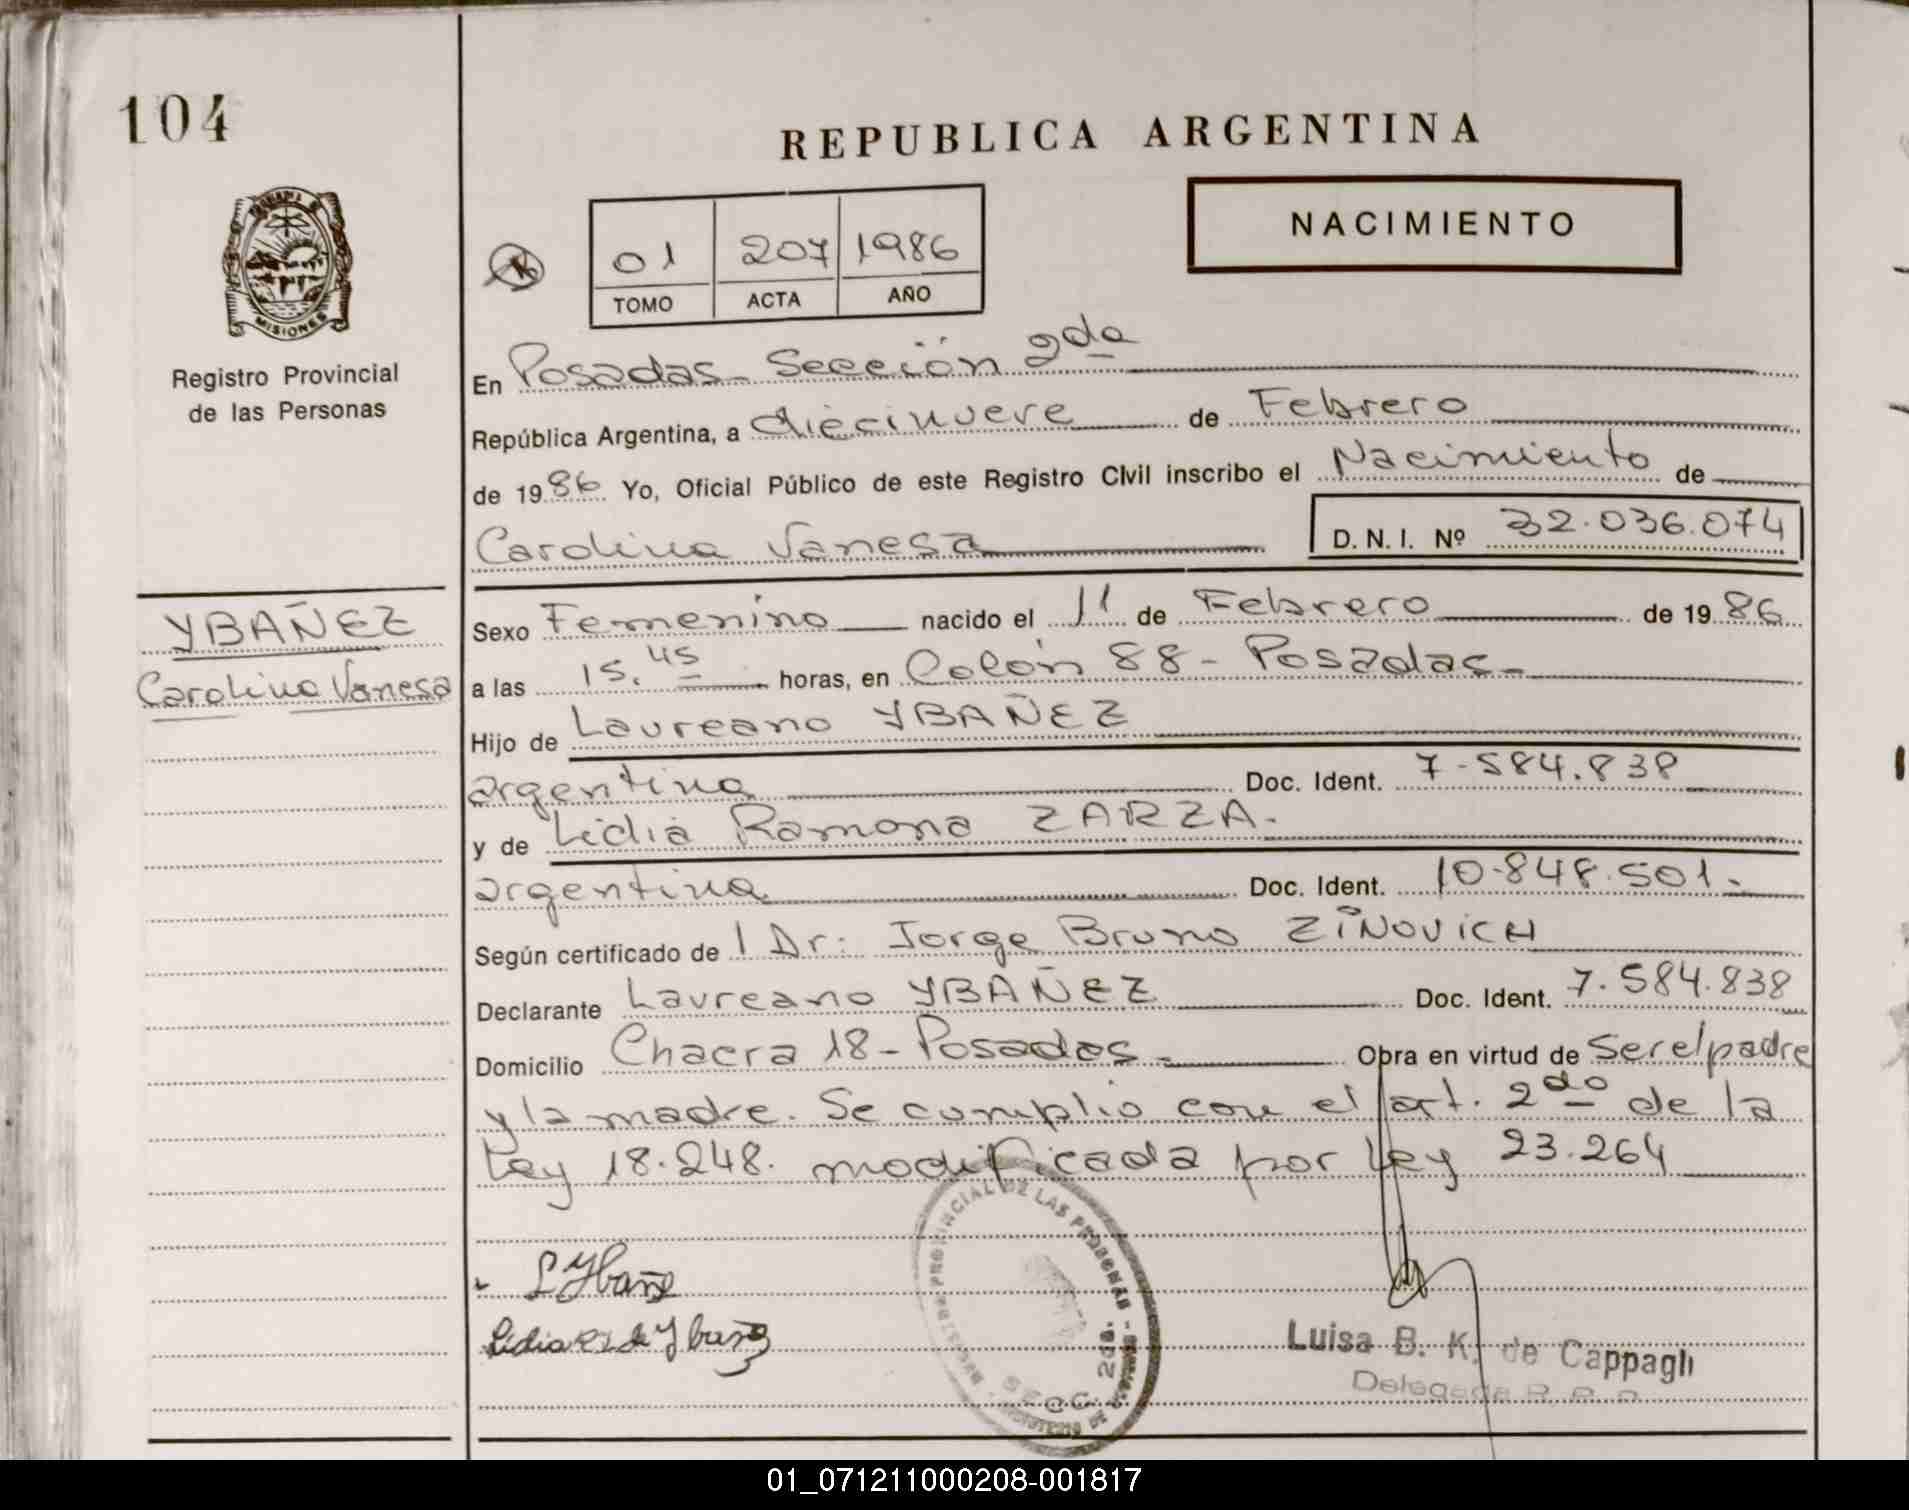 104
REPUBLICA ARGENTINA
NACIMIENTO
01 207 1986
TOMO ACTA AÑO
MISIONES
Registro Provincial
de las Personas
En Posadas - Sección 2da
República Argentina, a diecinueve de Febrero
de 1986 Yo, Oficial Público de este Registro Civil inscribo el Nacimiento de
Carolina Vanesa D. N. I. Nº 32.036.074
YBAÑEZ
Carolina Vanesa
Sexo Femenino nacido el 11 de Febrero de 1986
a las 15.45 horas, en Colón 88 - Posadas -
Hijo de Laureano YBAÑEZ
argentina Doc. Ident. 7.584.838
y de Lidia Ramona ZARZA.
argentina Doc. Ident. 10.848.501.-
Según certificado de l Dr: Jorge Bruno ZINOVICH
Declarante Laureano YBAÑEZ Doc. Ident. 7.584.838
Domicilio Chacra 18 - Posadas - Obra en virtud de Ser el padre
y la madre. Se cumplio con el art. 2do de la
Ley 18.248. modificada por Ley 23.264
L Ybañez
PROVINCIAL DE LAS PERSONAS
SECC. 2da.
Luisa B. K. de Cappagli
Delegada R. P. P.
01_071211000208-001817